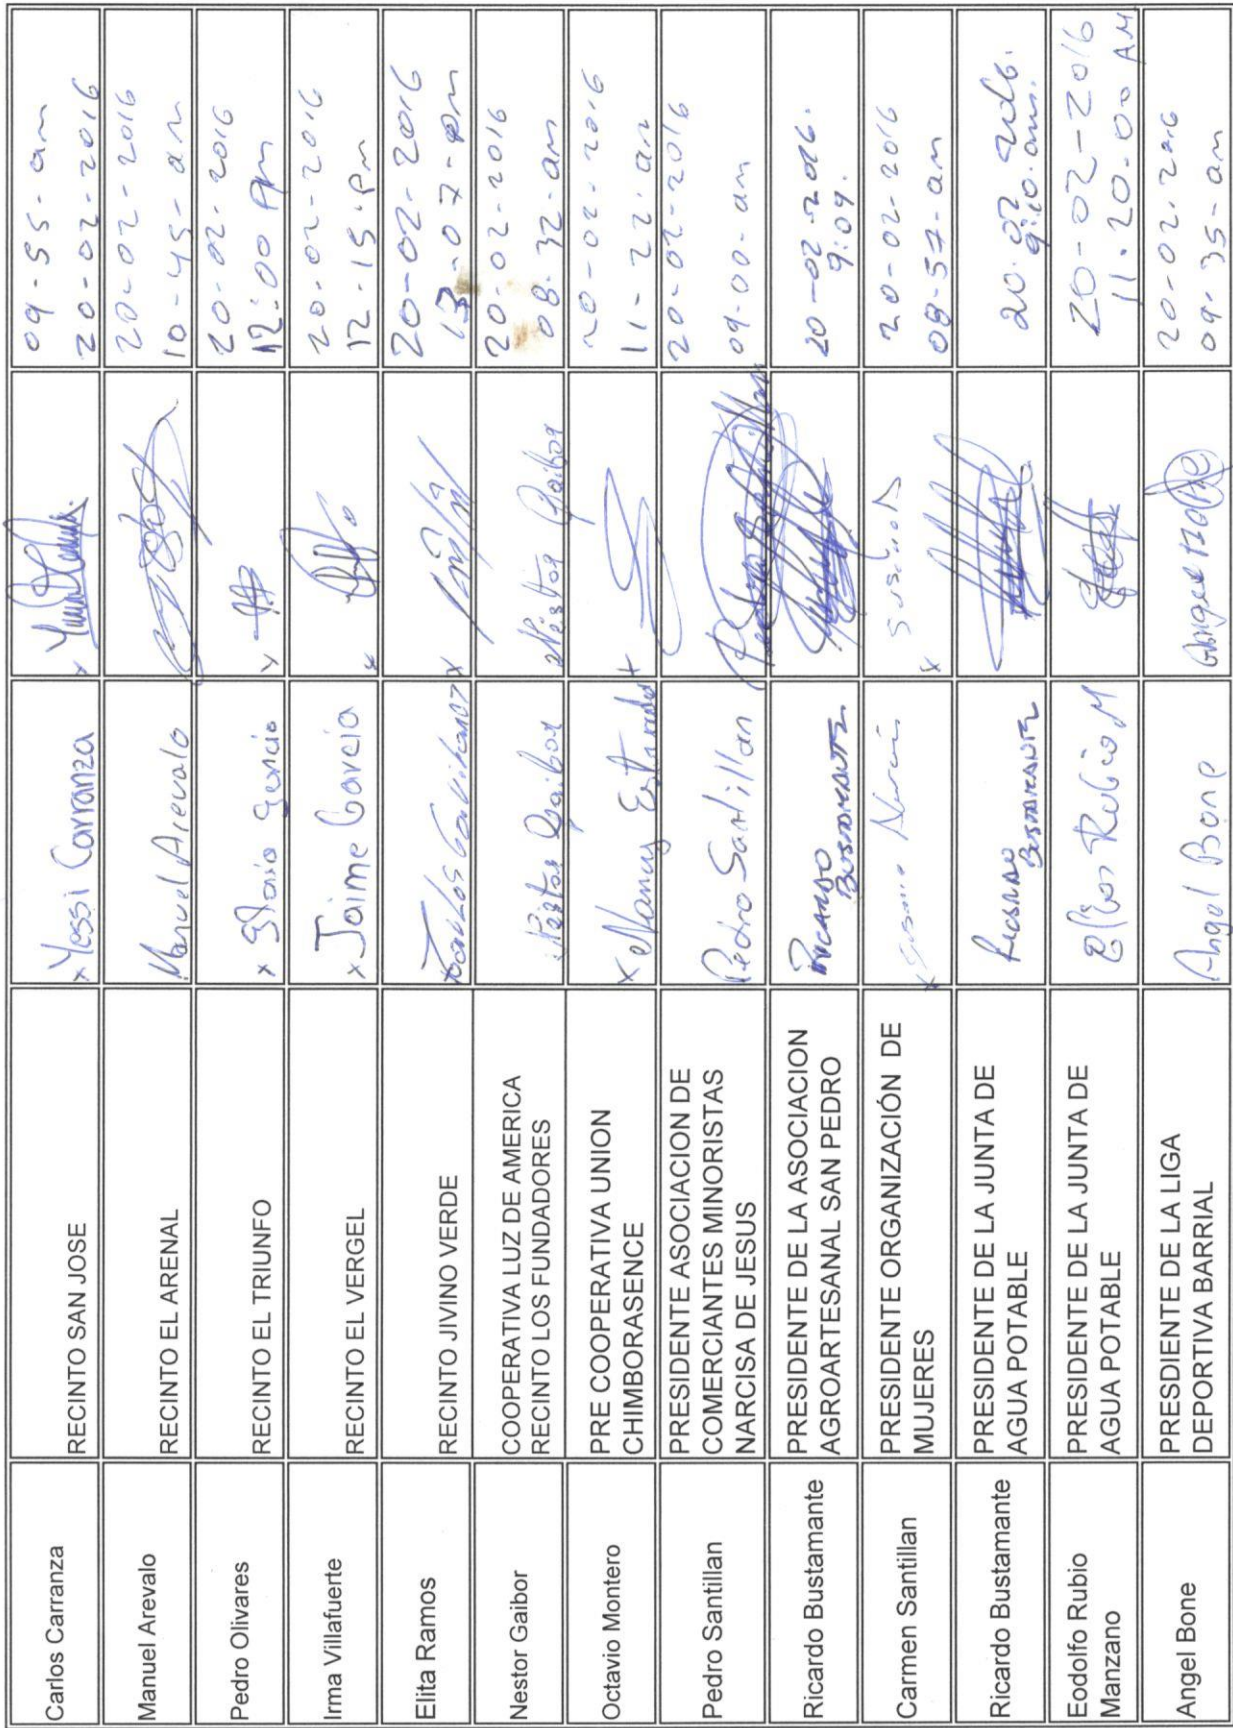 Carlos Carranza
RECINTO SAN JOSE
x Yessi Carranza
x
09-55-am
20-02-2016
Manuel Arevalo
RECINTO EL ARENAL
Manuel Arevalo
20-02-2016
10-45-am
Pedro Olivares
RECINTO EL TRIUNFO
x
20-02-2016
12:00 pm
Irma Villafuerte
RECINTO EL VERGEL
x Jaime Garcia
x
20-02-2016
12-15-pm
Elita Ramos
RECINTO JIVINO VERDE
x
20-02-2016
13-07-pm
Nestor Gaibor
COOPERATIVA LUZ DE AMERICA
RECINTO LOS FUNDADORES
Néstor Gaibor
Néstor Gaibor
20-02-2016
08-32-am
Octavio Montero
PRE COOPERATIVA UNION
CHIMBORASENCE
x Nancy Estrada
x
20-02-2016
11-22-am
Pedro Santillan
PRESIDENTE ASOCIACION DE
COMERCIANTES MINORISTAS
NARCISA DE JESUS
Pedro Santillan
20-02-2016
09-00-am
Ricardo Bustamante
PRESIDENTE DE LA ASOCIACION
AGROARTESANAL SAN PEDRO
RICARDO
BUSTAMANTE
20-02-2016.
9:09.
Carmen Santillan
PRESIDENTE ORGANIZACIÓN DE
MUJERES
x
x
20-02-2016
08-57-am
Ricardo Bustamante
PRESIDENTE DE LA JUNTA DE
AGUA POTABLE
RICARDO
BUSTAMANTE
20.02.2016.
9:10.am.
Eodolfo Rubio
Manzano
PRESIDENTE DE LA JUNTA DE
AGUA POTABLE
Rubio M
20-02-2016
11.20.00 AM
Angel Bone
PRESDIENTE DE LA LIGA
DEPORTIVA BARRIAL
Angel Bone
20-02-2016
09-35-am